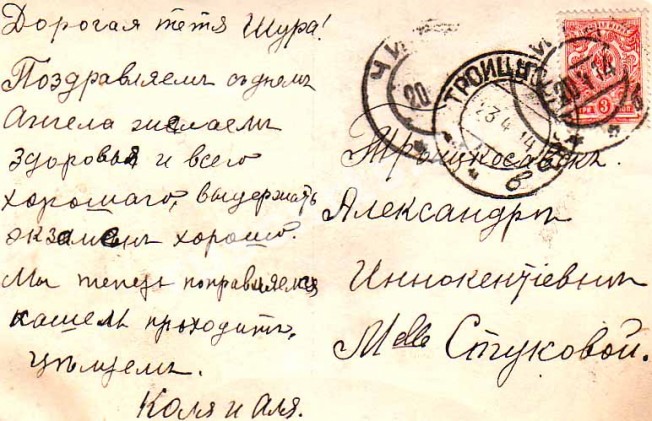 Дорогая тетя Шура!
Поздравляемъ съ днемъ
Ангела желаемъ
здоровья и всего
хорошаго, выдержать
экзаменъ хорошо.
Мы теперь поправляемся
кашель проходитъ,
цѣлуемъ.
Коля и Аля.
ТРОИЦКОСАВСК
23 4 14
20
20 14
3
Троицкосавскъ.
Александрѣ
Иннокентіевнѣ
Melle Стуковой.